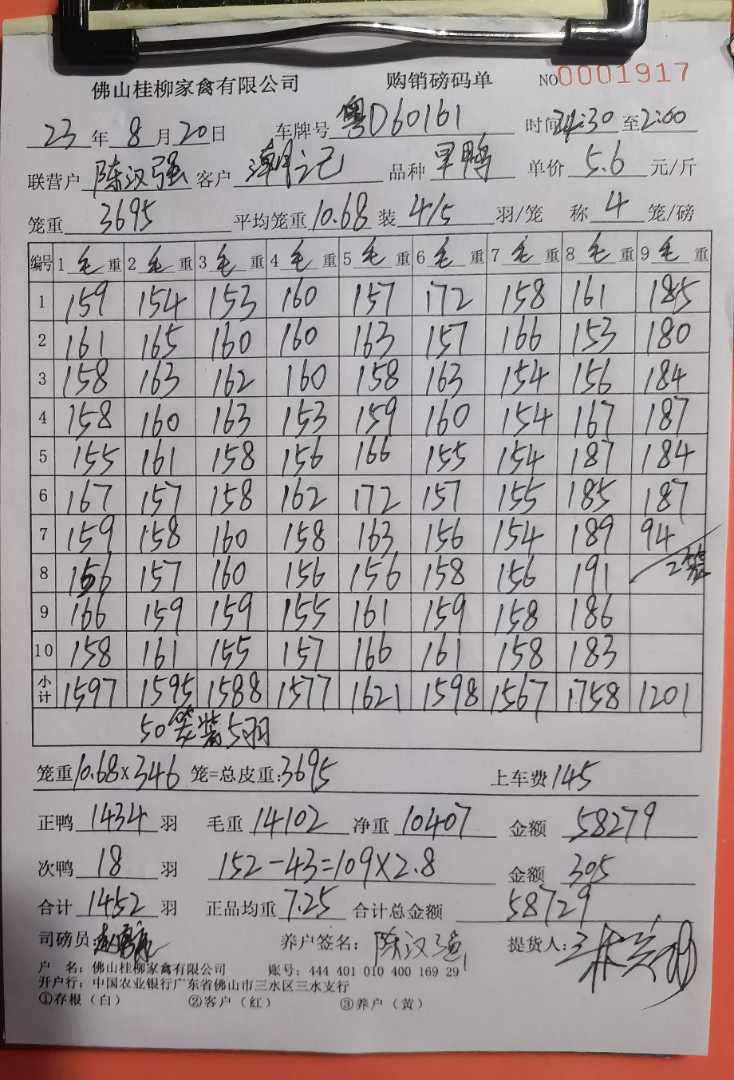 佛山桂柳家禽有限公司 购销磅码单 NO0001917
23年8月20日 车牌号 粤D60161 时间 24:30 至 2:00
联营户 陈汉强 客户 潮记 品种 旱鸭 单价 5.6 元/斤
笼重 3695 平均笼重 10.68 装 4/5 羽/笼 称 4 笼/磅
编号 1 毛 重 2 毛 重 3 毛 重 4 毛 重 5 毛 重 6 毛 重 7 毛 重 8 毛 重 9 毛 重
1 159 154 153 160 157 172 158 161 185
2 161 165 160 160 163 157 166 153 180
3 158 163 162 160 158 163 154 156 184
4 158 160 163 153 159 160 154 167 187
5 155 161 158 156 166 155 154 187 184
6 167 157 158 162 172 157 155 185 187
7 159 158 160 158 163 156 154 189 94
8 156 157 160 156 156 158 156 191 2笼
9 166 159 159 155 161 159 158 186
10 158 161 155 157 166 161 158 183
小计 1597 1595 1588 1577 1621 1598 1567 1758 1201
50笼装5羽
笼重 10.68×346 笼=总皮重: 3695 上车费 145
正鸭 1434 羽 毛重 14102 净重 10407 金额 58279
次鸭 18 羽 152-43=109×2.8 金额 305
合计 1452 羽 正品均重 7.25 合计总金额 58729
司磅员: 养户签名: 陈汉强 提货人:
户 名: 佛山桂柳家禽有限公司 账号: 444 401 010 400 169 29
开户行: 中国农业银行广东省佛山市三水区三水支行
①存根(白) ②客户(红) ③养户(黄)